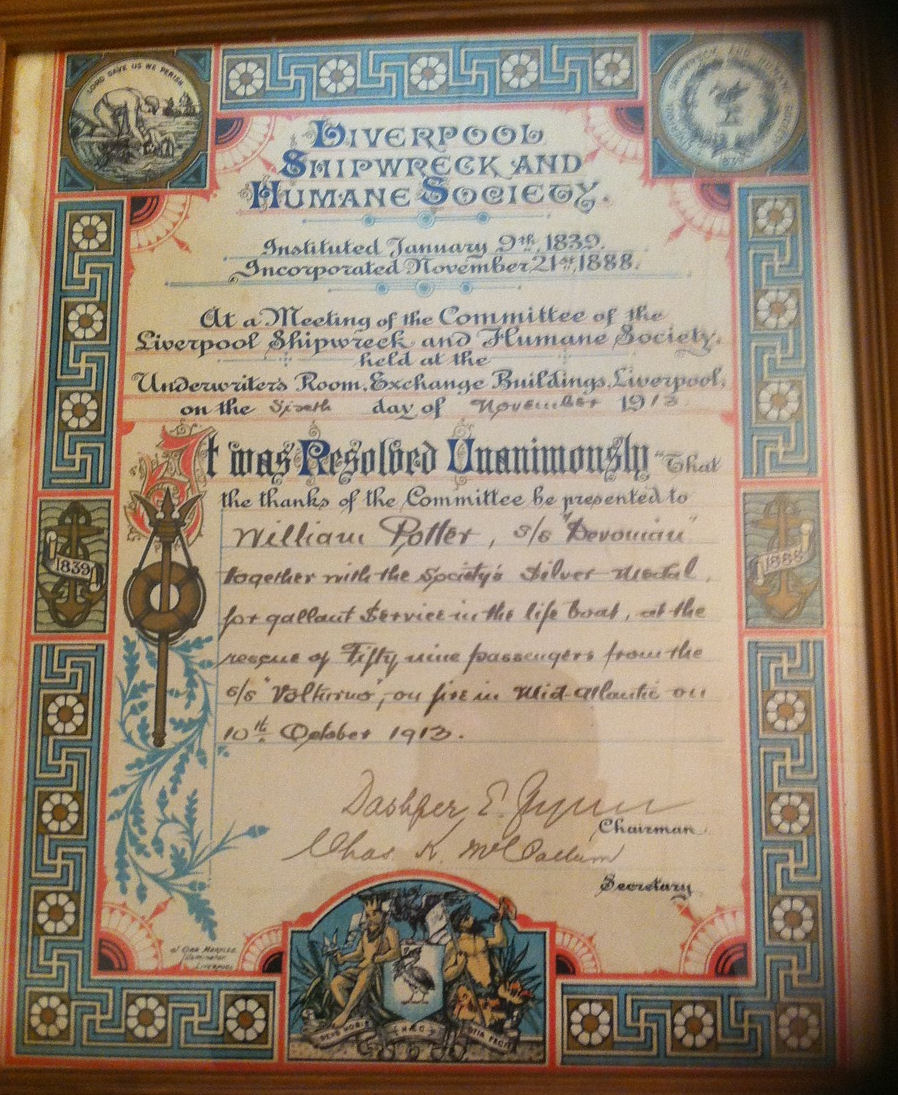 LORD SAVE US WE PERISH
LIVERPOOL SHIPWRECK AND HUMANE SOCIETY
1839
LIVERPOOL
SHIPWRECK AND
HUMANE SOCIETY.
Instituted January 9th, 1839.
Incorporated November 21st, 1888.
At a Meeting of the Committee of the
Liverpool Shipwreck and Humane Society,
held at the
Underwriters Room, Exchange Buildings, Liverpool,
on the Sixth day of November 1913
It was Resolved Unanimously "That
the thanks of the Committee be presented to
William Potter, s/s "Devonian"
together with the Society's Silver Medal,
for gallant Service in the life boat, at the
rescue of Fifty nine passengers from the
s/s "Volturno", on fire in Mid Atlantic on
10th October 1913.
Chairman
Chas. K. McCallum
Secretary
1839
1888
Liverpool
DEUS NOBIS HÆC OTIA FECIT